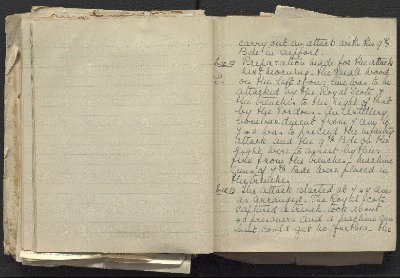 carry out an attack with the 9th
Bde in support
Dec 13 Preparation made for the attack
next morning. The small wood
on the left of our line was to be
attacked by the Royal Scots &
the trenches to the right of that
by the Gordons. An artillery
bombardment from 7 am to
7.40 was to precede the infantry
attack and the 9th Bde on the
right were to assist by their
fire from the trenches. Machine
guns of 7th Bde were placed in
the trenches.
The attack started at 7.45 am
as arranged. The Royal Scots
captured a trench took about
40 prisoners and a machine gun
but could get no further. The